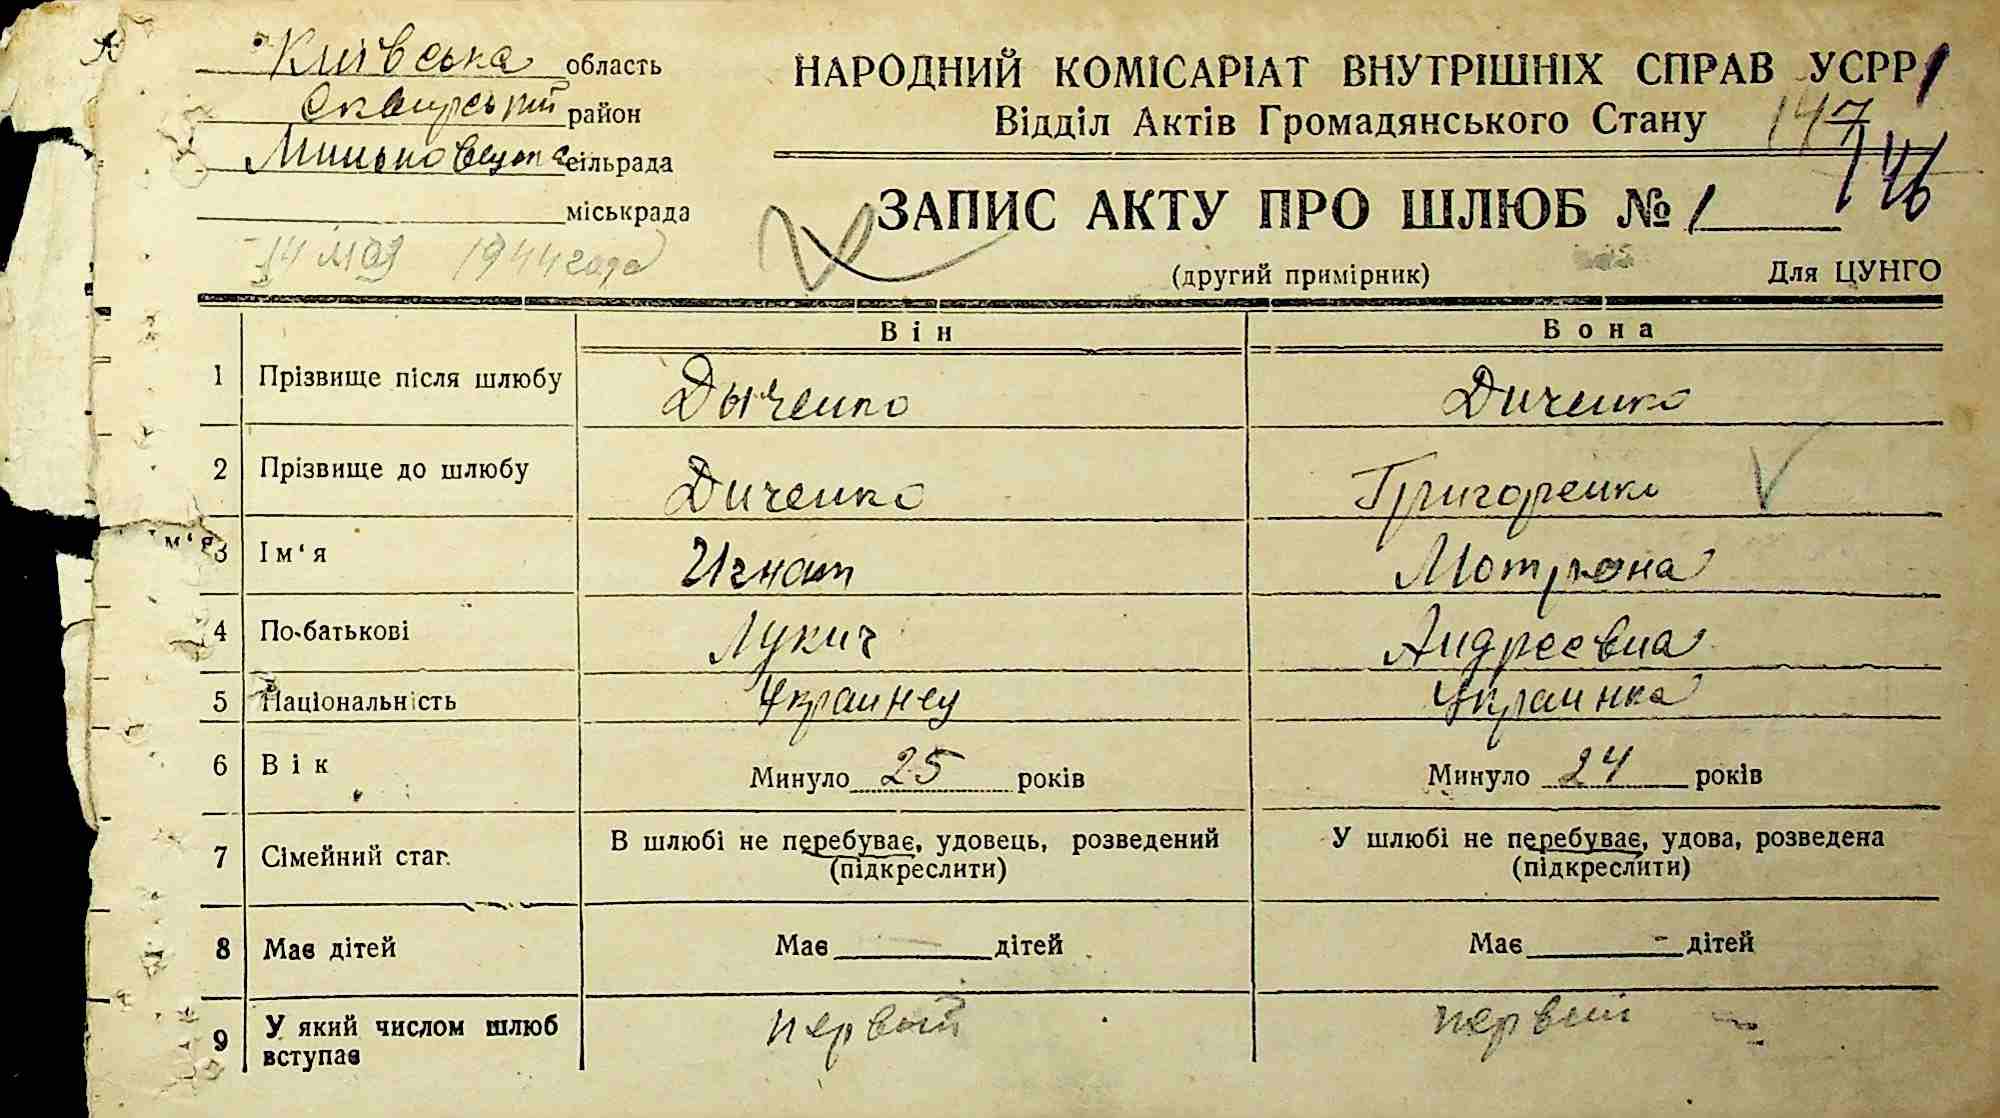 Київська область
Сквирський район
Миньковецька сільрада
міськрада
14 мая 1944 года
НАРОДНИЙ КОМІСАРІАТ ВНУТРІШНІХ СПРАВ УСРР
Відділ Актів Громадянського Стану
147
146
ЗАПИС АКТУ ПРО ШЛЮБ № 1
(другий примірник)
Для ЦУНГО
Він Вона
1 Прізвище після шлюбу Дыченко Диченко
2 Прізвище до шлюбу Диченко Григоренко
3 Ім'я Игнат Мотрона
4 По-батькові Лукич Андреевна
5 Національність Украинец Украинка
6 Вік Минуло 25 років Минуло 24 років
7 Сімейний стан В шлюбі не перебуває, удовець, розведений У шлюбі не перебуває, удова, розведена
(підкреслити) (підкреслити)
8 Має дітей Має дітей Має - дітей
9 У який числом шлюб вступає первый первий